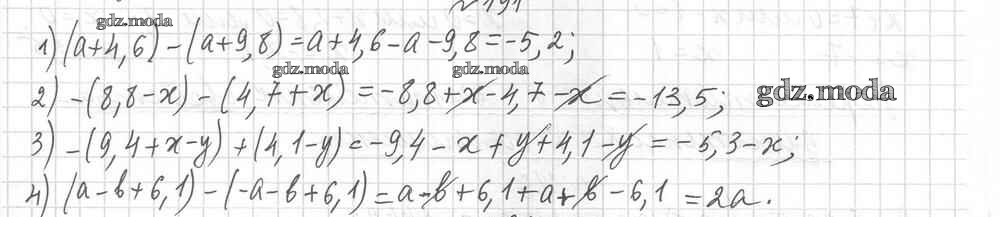 №191
gdz.moda
1) (a+4,6) - (a+9,8) = a+4,6 - a - 9,8 = -5,2;
gdz.moda gdz.moda
2) -(8,8-x) - (4,7+x) = -8,8+x - 4,7 - x = -13,5;
gdz.moda
3) -(9,4+x-y) + (4,1-y) = -9,4 - x + y + 4,1 - y = -5,3 - x;
4) (a-b+6,1) - (-a-b+6,1) = a - b + 6,1 + a + b - 6,1 = 2a.